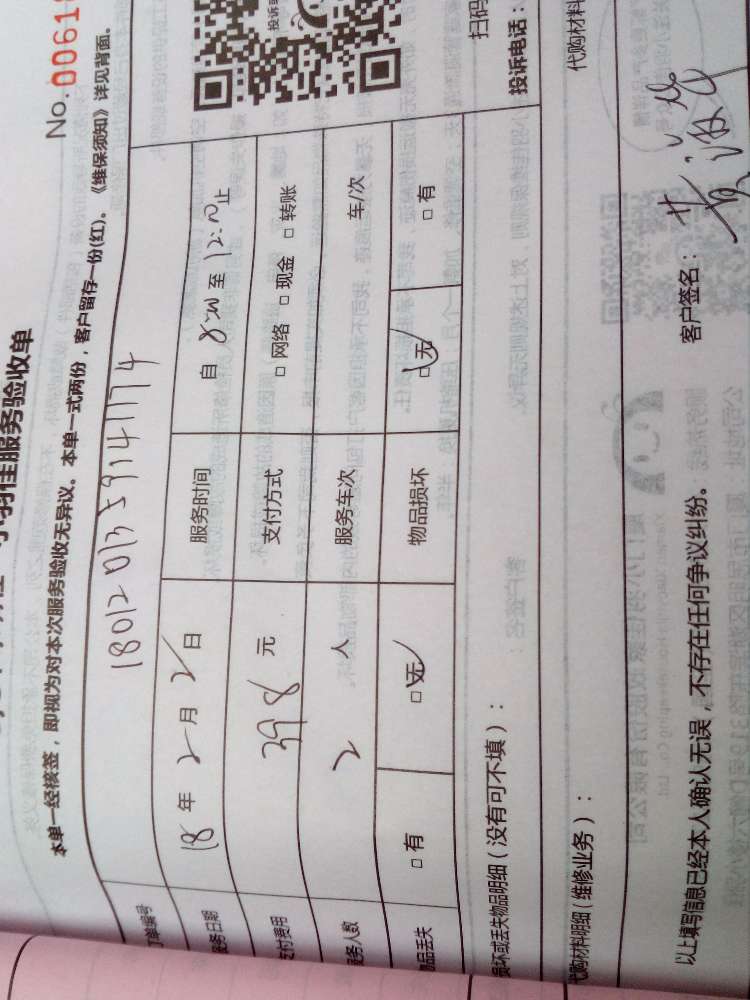 羽佳服务验收单
No.0061
本单一经核签，即视为对本次服务验收无异议。本单一式两份，客户留存一份(红)。《维保须知》详见背面。
订单编号 1801201359141174
服务日期 18年2月2日 服务时间 自8:00至12:00止
支付费用 398元 支付方式 □网络 □现金 □转账
服务人数 2人 服务车次 车/次
物品丢失 □有 □无 物品损坏 □无 □有
扫码
投诉电话：
损坏或丢失物品明细（没有可不填）：
代购材料明细（维修业务）： 代购材料
以上填写信息已经本人确认无误，不存在任何争议纠纷。 客户签名：